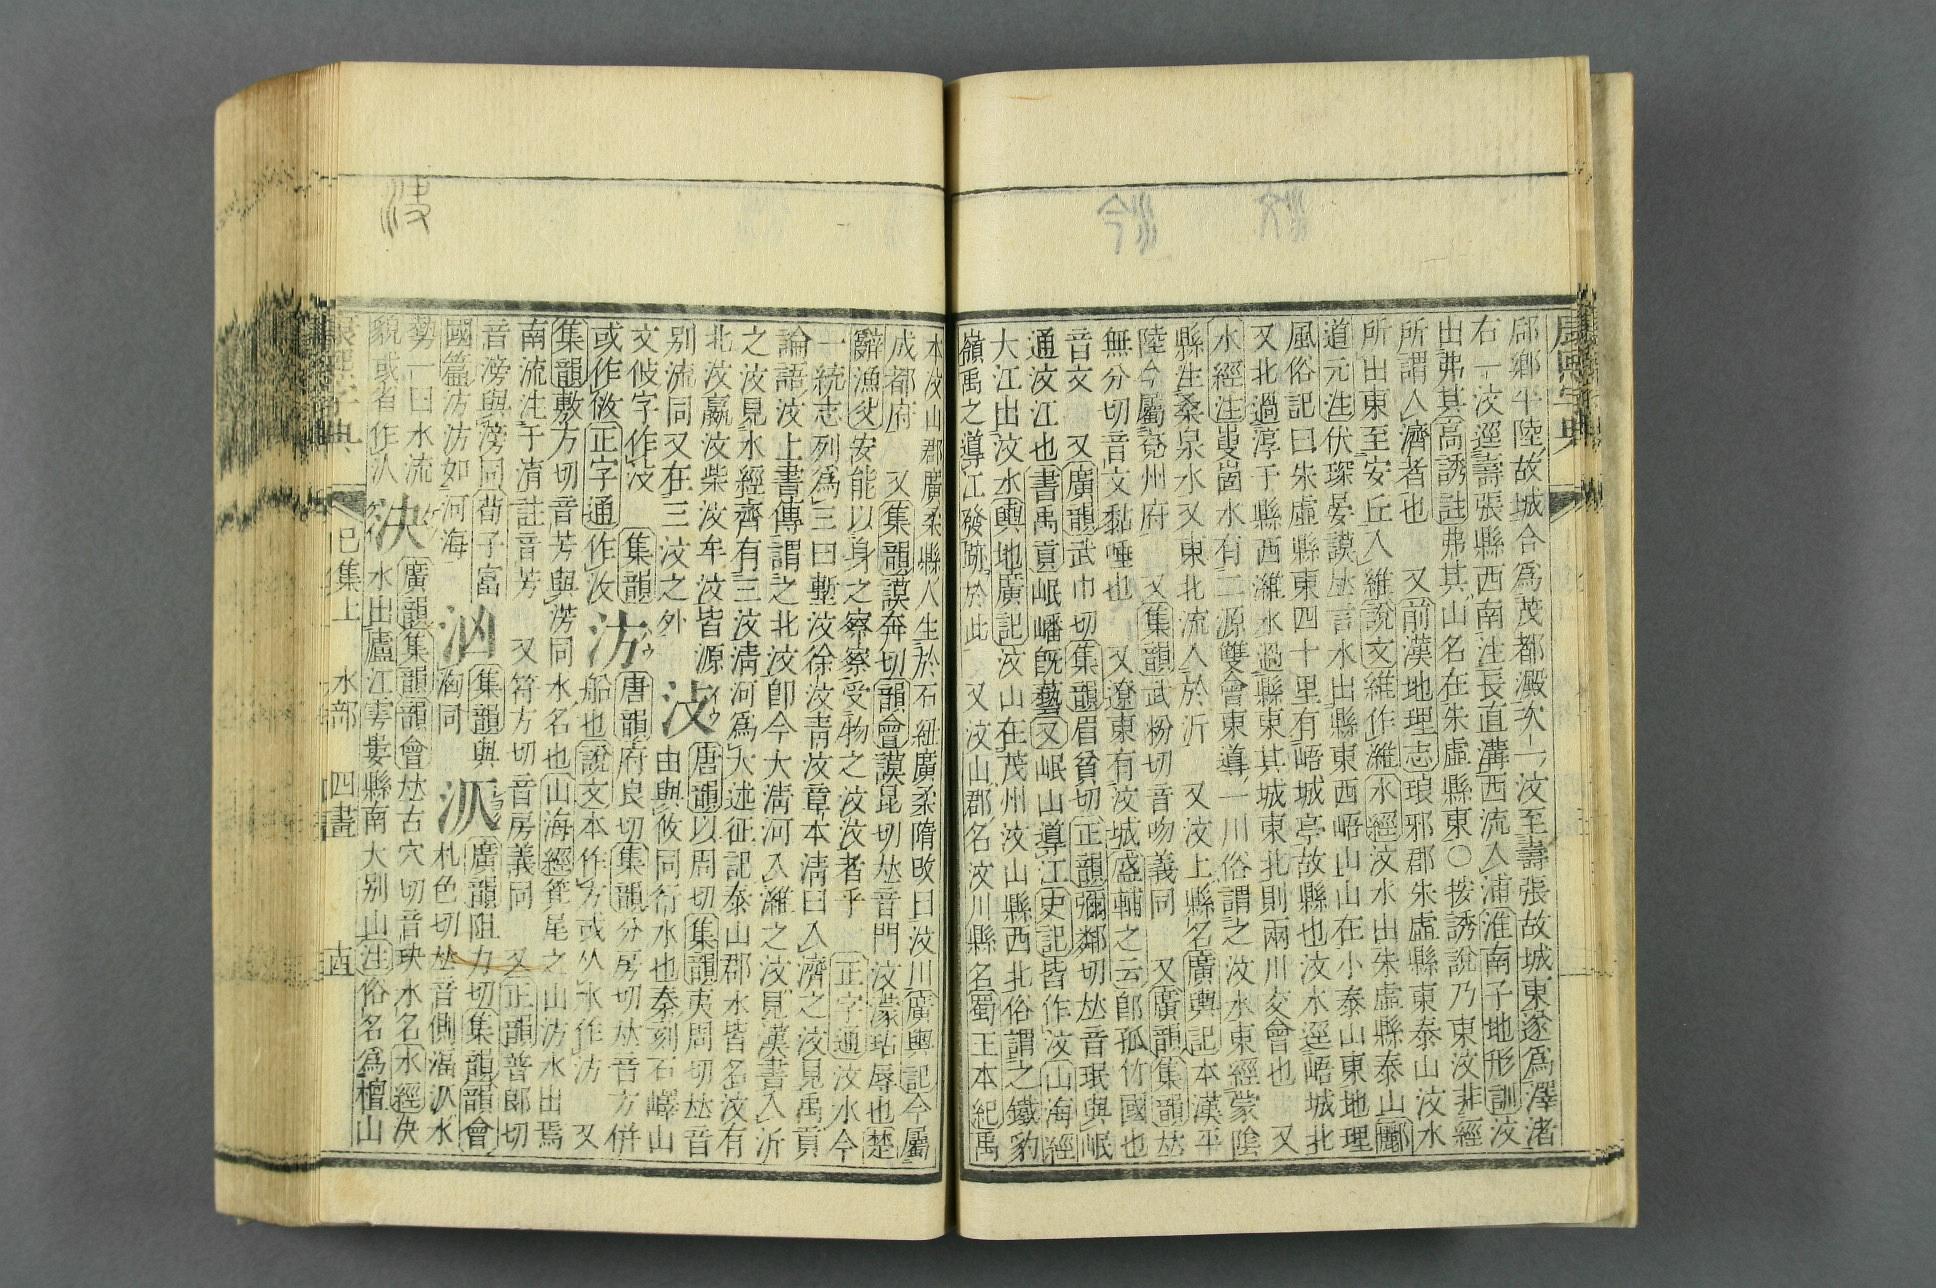 康熙字典
鄉平陸故城合爲茂都澱次一汶至壽張故城東遂爲澤渚
右一汶逕壽張縣西南注長直溝西流入浦淮南子地形訓汶
出弗其高誘註弗其山名在朱虛縣東○按誘說乃東汶非經
所謂入濟者也 又前漢地理志琅邪郡朱虛縣東泰山汶水
所出東至安丘入維說文維作濰水經汶水出朱虛縣泰山酈
道元注伏琛晏謨𠀤言水出縣東西峿山山在小泰山東地理
風俗記曰朱虛縣東四十里有峿城亭故縣也汶水逕峿城北
又北過淳于縣西濰水過縣東其城東北則兩川交會也 又
水經注叟崮水有二源雙會東導一川俗謂之汶水東經蒙陰
縣注桑泉水又東北流入於沂 又汶上縣名廣輿記本漢平
陸今屬兗州府 又集韻武粉切音吻義同 又廣韻集韻𠀤
無分切音文黏唾也 又遼東有汶城盛輔之云卽孤竹國也
音文 又廣韻武巾切集韻眉貧切正韻彌鄰切𠀤音珉與岷
通汶江也書禹貢岷嶓旣藝又岷山導江史記皆作汶山海經
大江出汶水輿地廣記汶山在茂州汶山縣西北俗謂之鐵豹
嶺禹之導江發跡於此 又汶山郡名汶川縣名蜀王本紀禹
本汶山郡廣柔縣人生於石紐廣柔隋改曰汶川廣輿記今屬
成都府 又集韻謨奔切韻會謨昆切𠀤音門汶蒙玷辱也楚
辭漁父安能以身之察察受物之汶汶者乎 正字通汶水今
一統志列爲三曰塹汶徐汶靑汶章本淸曰入濟之汶見禹貢
論語汶上書傳謂之北汶卽今大淸河入濰之汶見漢書入沂
之汶見水經齊有三汶淸河爲大述征記泰山郡水皆名汶有
北汶嬴汶柴汶牟汶皆源
別流同又在三汶之外 汥 唐韻以周切集韻夷周切𠀤音
由與攸同行水也秦刻石嶧山
文攸字作汥 集韻
或作攸正字通作汷 汸 唐韻府良切集韻分房切𠀤音方併
船也說文本作方或从水作汸 又
集韻敷方切音芳與淓同水名也山海經箕尾之山汸水出焉
南流注于淯註音芳 又符方切音房義同 又正韻普郎切
音滂與滂同荀子富
國篇汸汸如河海 汹 集韻與
洶同 汃 廣韻阻力切集韻韻會
札色切𠀤音側湢汃水
勢一曰水流
貌或省作汃 泬 廣韻集韻韻會𠀤古穴切音玦水名水經泬
水出廬江雩婁縣南大别山注俗名爲檀山
康熙字典 巳集上 水部 四畫